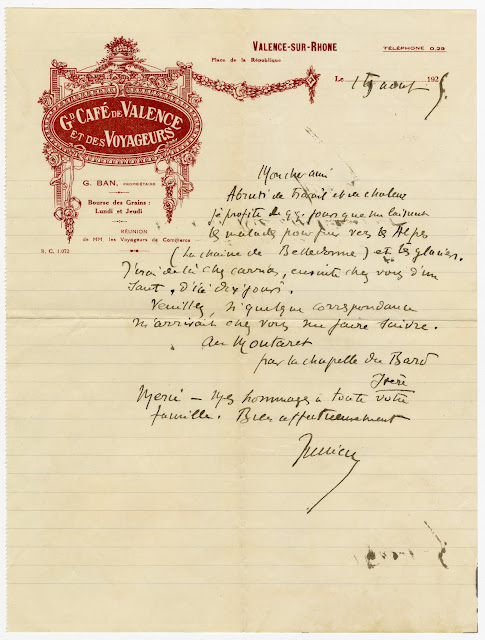 VALENCE-SUR-RHONE
TÉLÉPHONE 0,29
Place de la République
GD CAFÉ DE VALENCE
ET DES VOYAGEURS
G. BAN, PROPRIÉTAIRE
Bourse des Grains :
Lundi et Jeudi
RÉUNION
de MM. les Voyageurs de Commerce
R. C. 1.072
Le 15 aout 1925.
Mon cher ami
Abruti de travail et de chaleur
je profite de qq. jours que me laissent
les malades pour fuir vers les Alpes
(La chaine de Belledonne) et les glaciers.
J'irai de là chez carrias, ensuite chez vous d'un
saut, d'ici dix jours.
Veuillez, si quelque correspondance
m'arrivait chez vous me faire suivre.
au Moutaret
par la chapelle du Bard
Isère
Merci — Mes hommages a toute votre
famille. Bien affectueusement